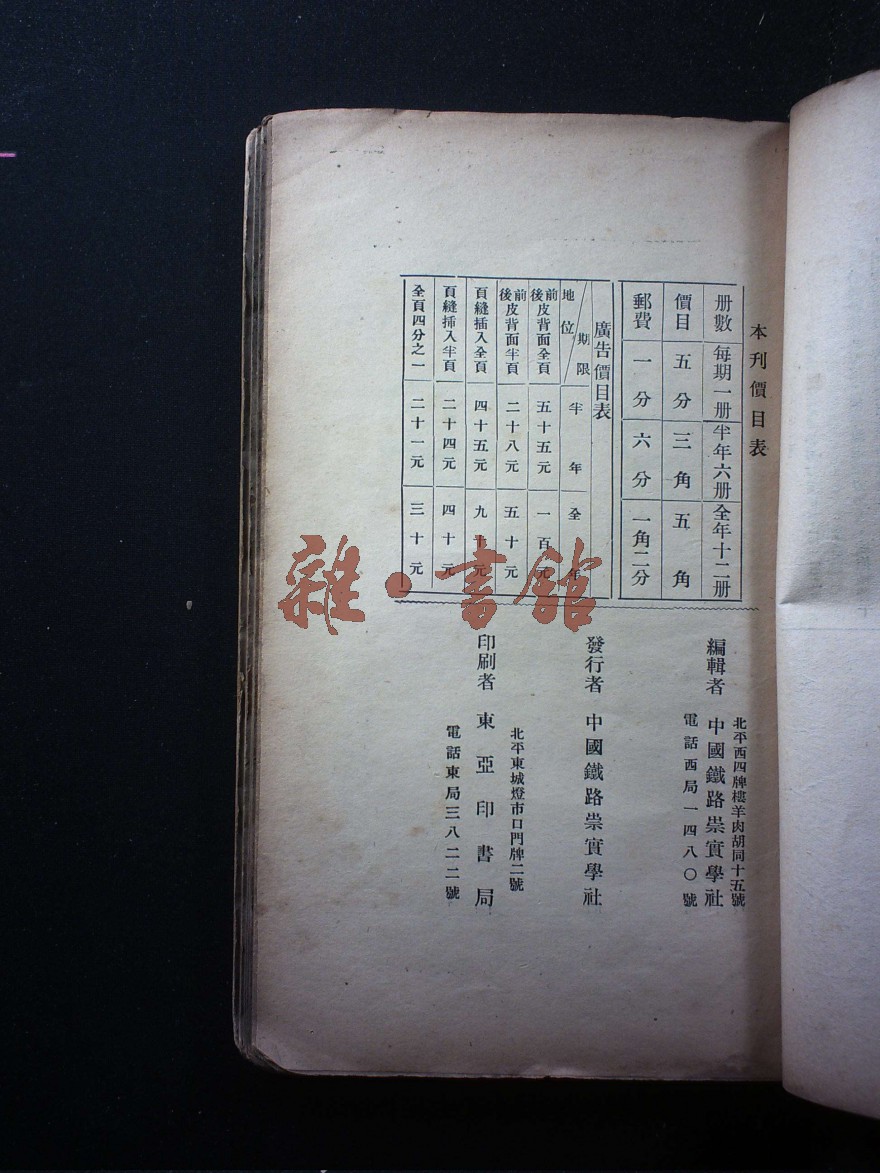 本刊價目表
册數 每期一册 半年六册 全年十二册
價目 五分 三角 五角
郵費 一分 六分 一角二分
廣告價目表
地位 期限 半年 全年
前後皮背面全頁 五十五元 一百元
前後皮背面半頁 二十八元 五十元
頁縫插入全頁 四十五元 九十元
頁縫插入半頁 二十四元 四十元
全頁四分之一 二十一元 三十元
北平西四牌樓羊肉胡同十五號
編輯者 中國鐵路崇實學社
電話西局一四八〇號
發行者 中國鐵路崇實學社
北平東城燈市口門牌二號
印刷者 東亞印書局
電話東局三八二二號
雜·書館